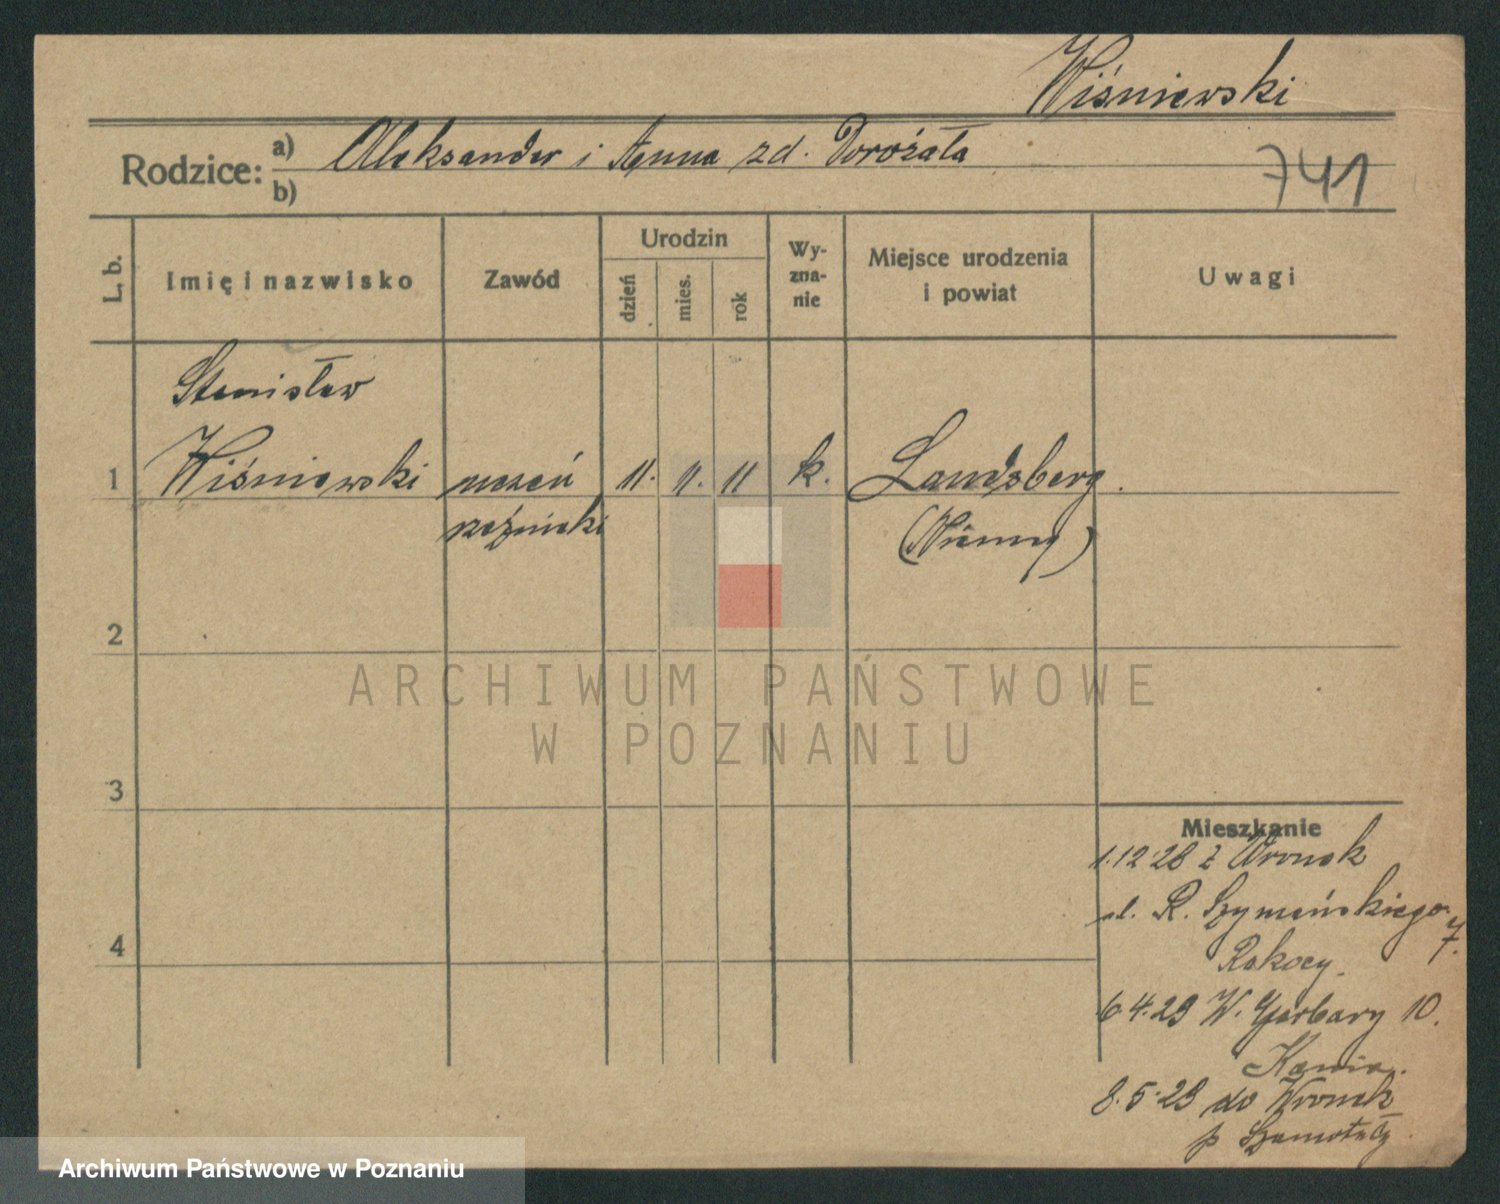 Wiśniewski
Rodzice: a) Aleksander i Anna zd. Dorożała
b)
741
L. b.
Imię i nazwisko
Zawód
Urodzin
dzień
mies.
rok
Wy-
zna-
nie
Miejsce urodzenia
i powiat
Uwagi
Stanisław
1 Wiśniewski uczeń 11. 11. 11 k. Landsberg.
rzeźnicki (Niemcy)
2
ARCHIWUM PAŃSTWOWE
W POZNANIU
3
Mieszkanie
1.12 28 z Wronek
ul. R. Szymańskiego 7.
4
6.4.29 W. Garbary 10.
Kania.
8.5.29 do Wronek
p Szamotuły
Archiwum Państwowe w Poznaniu